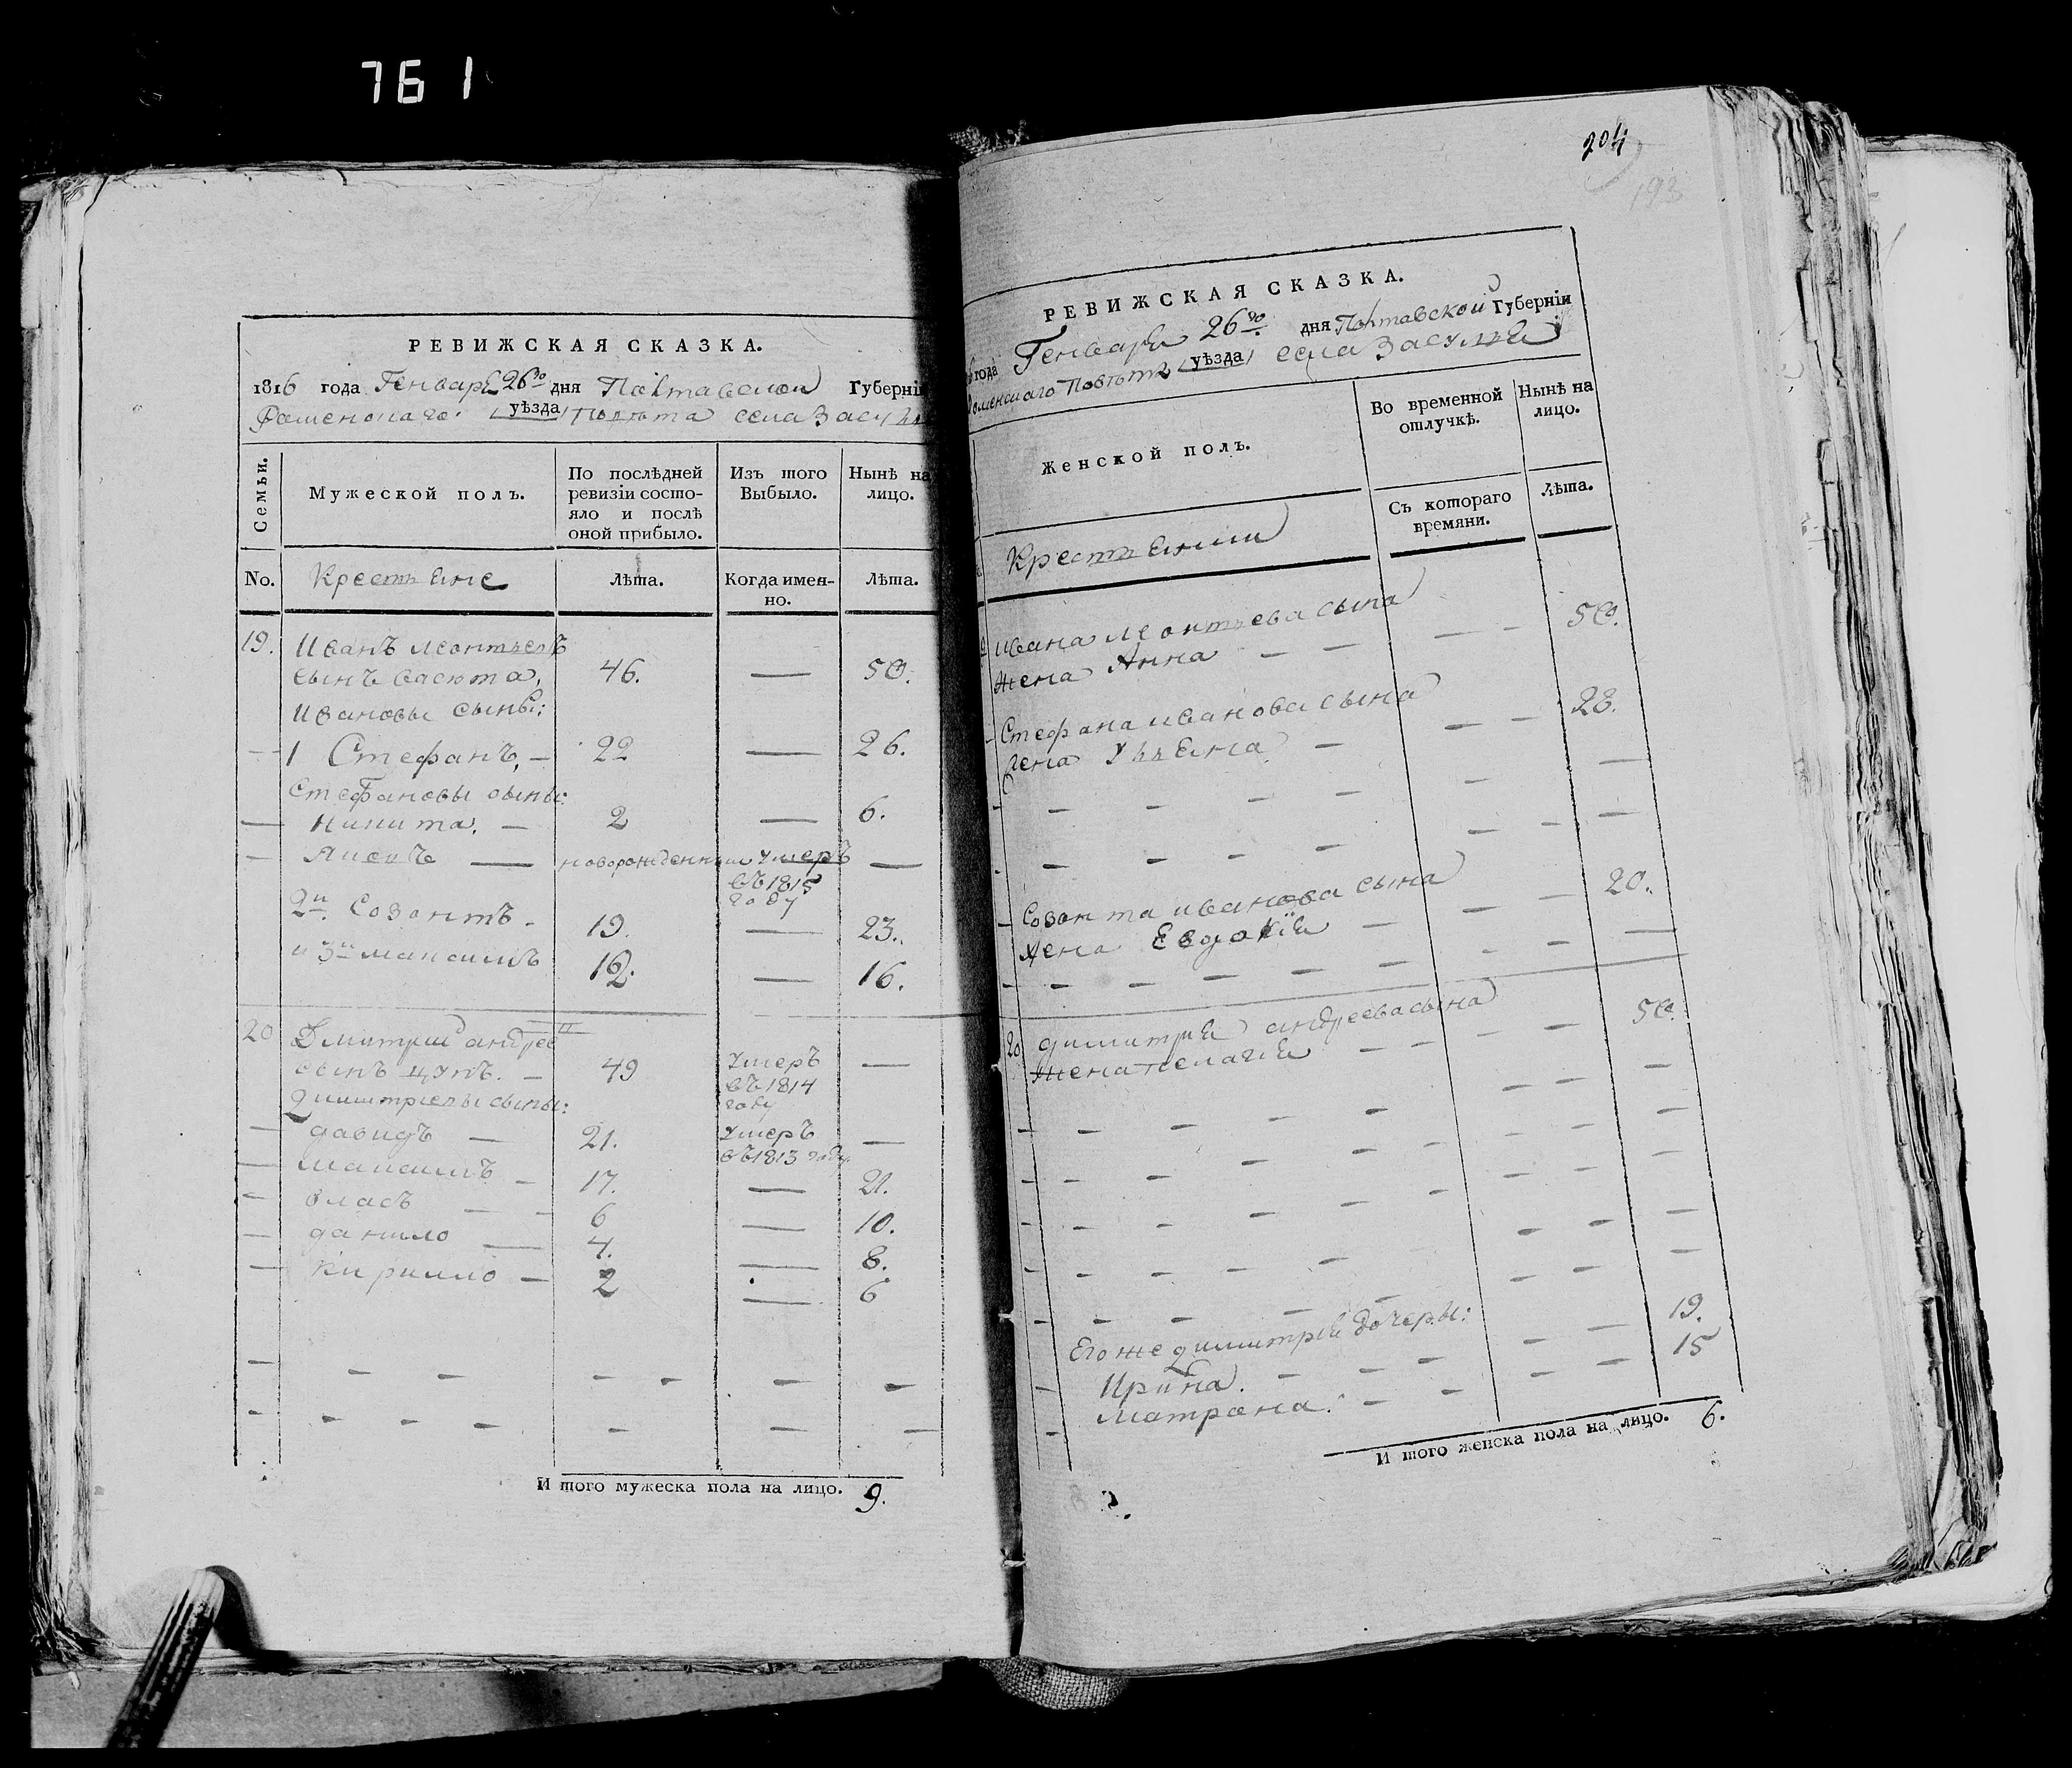 761
РЕВИЖСКАЯ СКАЗКА.
1816 года Генваря 26го дня Полтавской Губерніи
Роменского уѣзда повѣта села Засу
Семьи.
Мужеской полъ.
По послѣдней ревизіи состояло и послѣ оной прибыло.
Изъ того Выбыло.
Нынѣ на лицо.
No. Крестьяне Лѣта. Когда именно. Лѣта.
19. Иванъ Леонтьевъ
сынъ Васюта, 46. — 50.
Ивановы сыны:
— 1 Стефанъ, — 22 — 26.
Стефановы сыны:
— Никита. — 2 — 6.
— — новорожденный умеръ —
въ 1815
году
2й Созонтъ - 19. — 23.
и 3й Максимъ 12. — 16.
20 Дмитрий андреевъ
сынъ цупъ. — 49 умеръ —
въ 1814
году
Димитриевы сыны:
— давидъ — 21. умеръ —
въ 1813 году
— Максимъ — 17. — 21.
— власъ — 6 — 10.
— данило — 4. — 8.
— Кирило — 2 — 6
И того мужеска пола на лицо. 9.
204
193
РЕВИЖСКАЯ СКАЗКА.
года Генваря 26го дня Полтавской Губерніи
Роменского повѣта уѣзда села Засулья
Женской полъ.
Во временной отлучкѣ.
Нынѣ на лицо.
Съ котораго времяни.
Лѣта.
Крестьянки
Ивана Леонтьева сына
жена Анна — — — - 50.
Стефана иванова сына
жена Ульяна — — - 28.
Созонта иванова сына
жена Евдокія — — — 20.
20 димитрия андреева сына
жена Пелагія — — — — 50.
Его же димитрія дочеры:
Ирина. — — — — 19.
Матрона. — — — — 15
И того женска пола на лицо. 6.